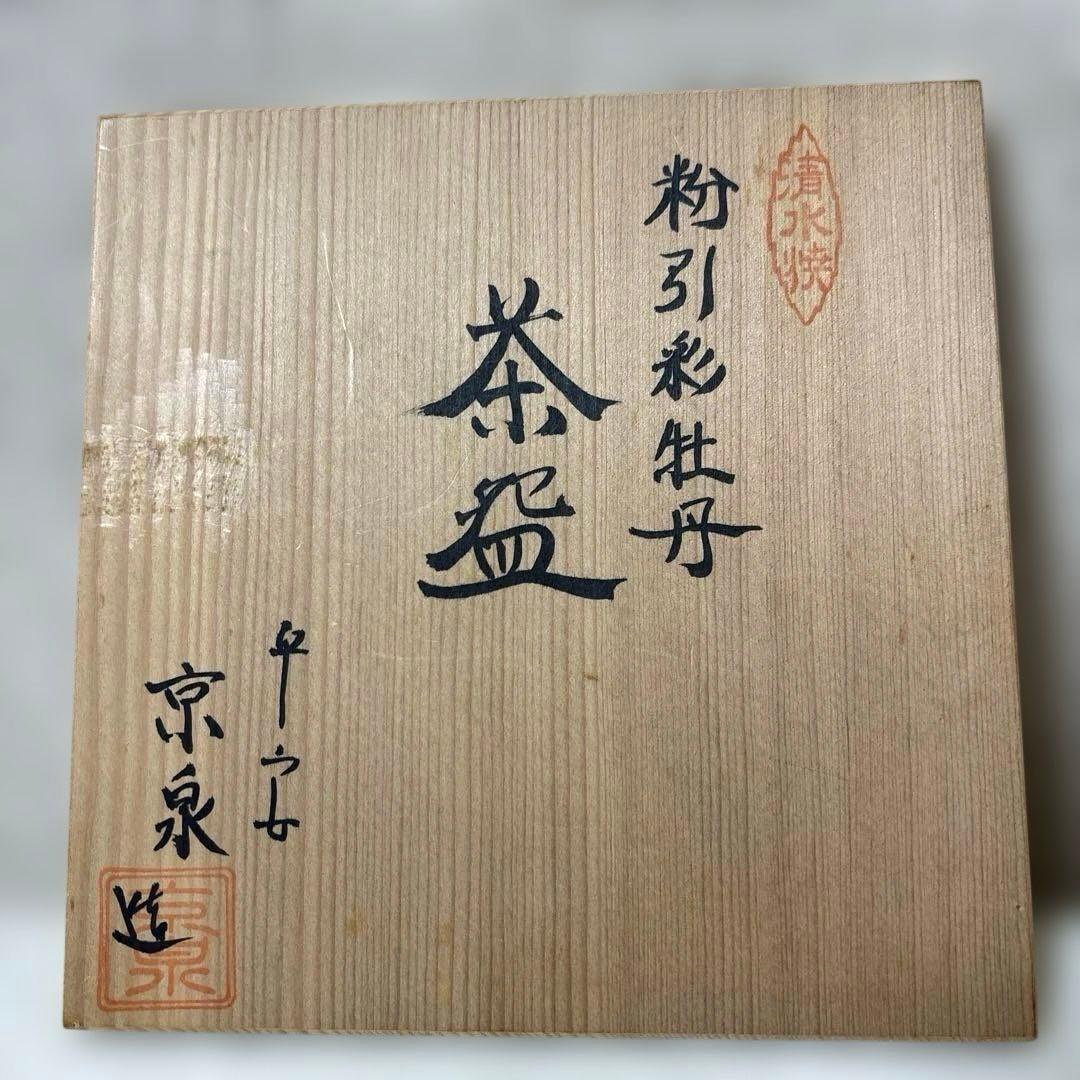 清水焼
粉引彩牡丹
茶盌
平安
京泉
造
京泉